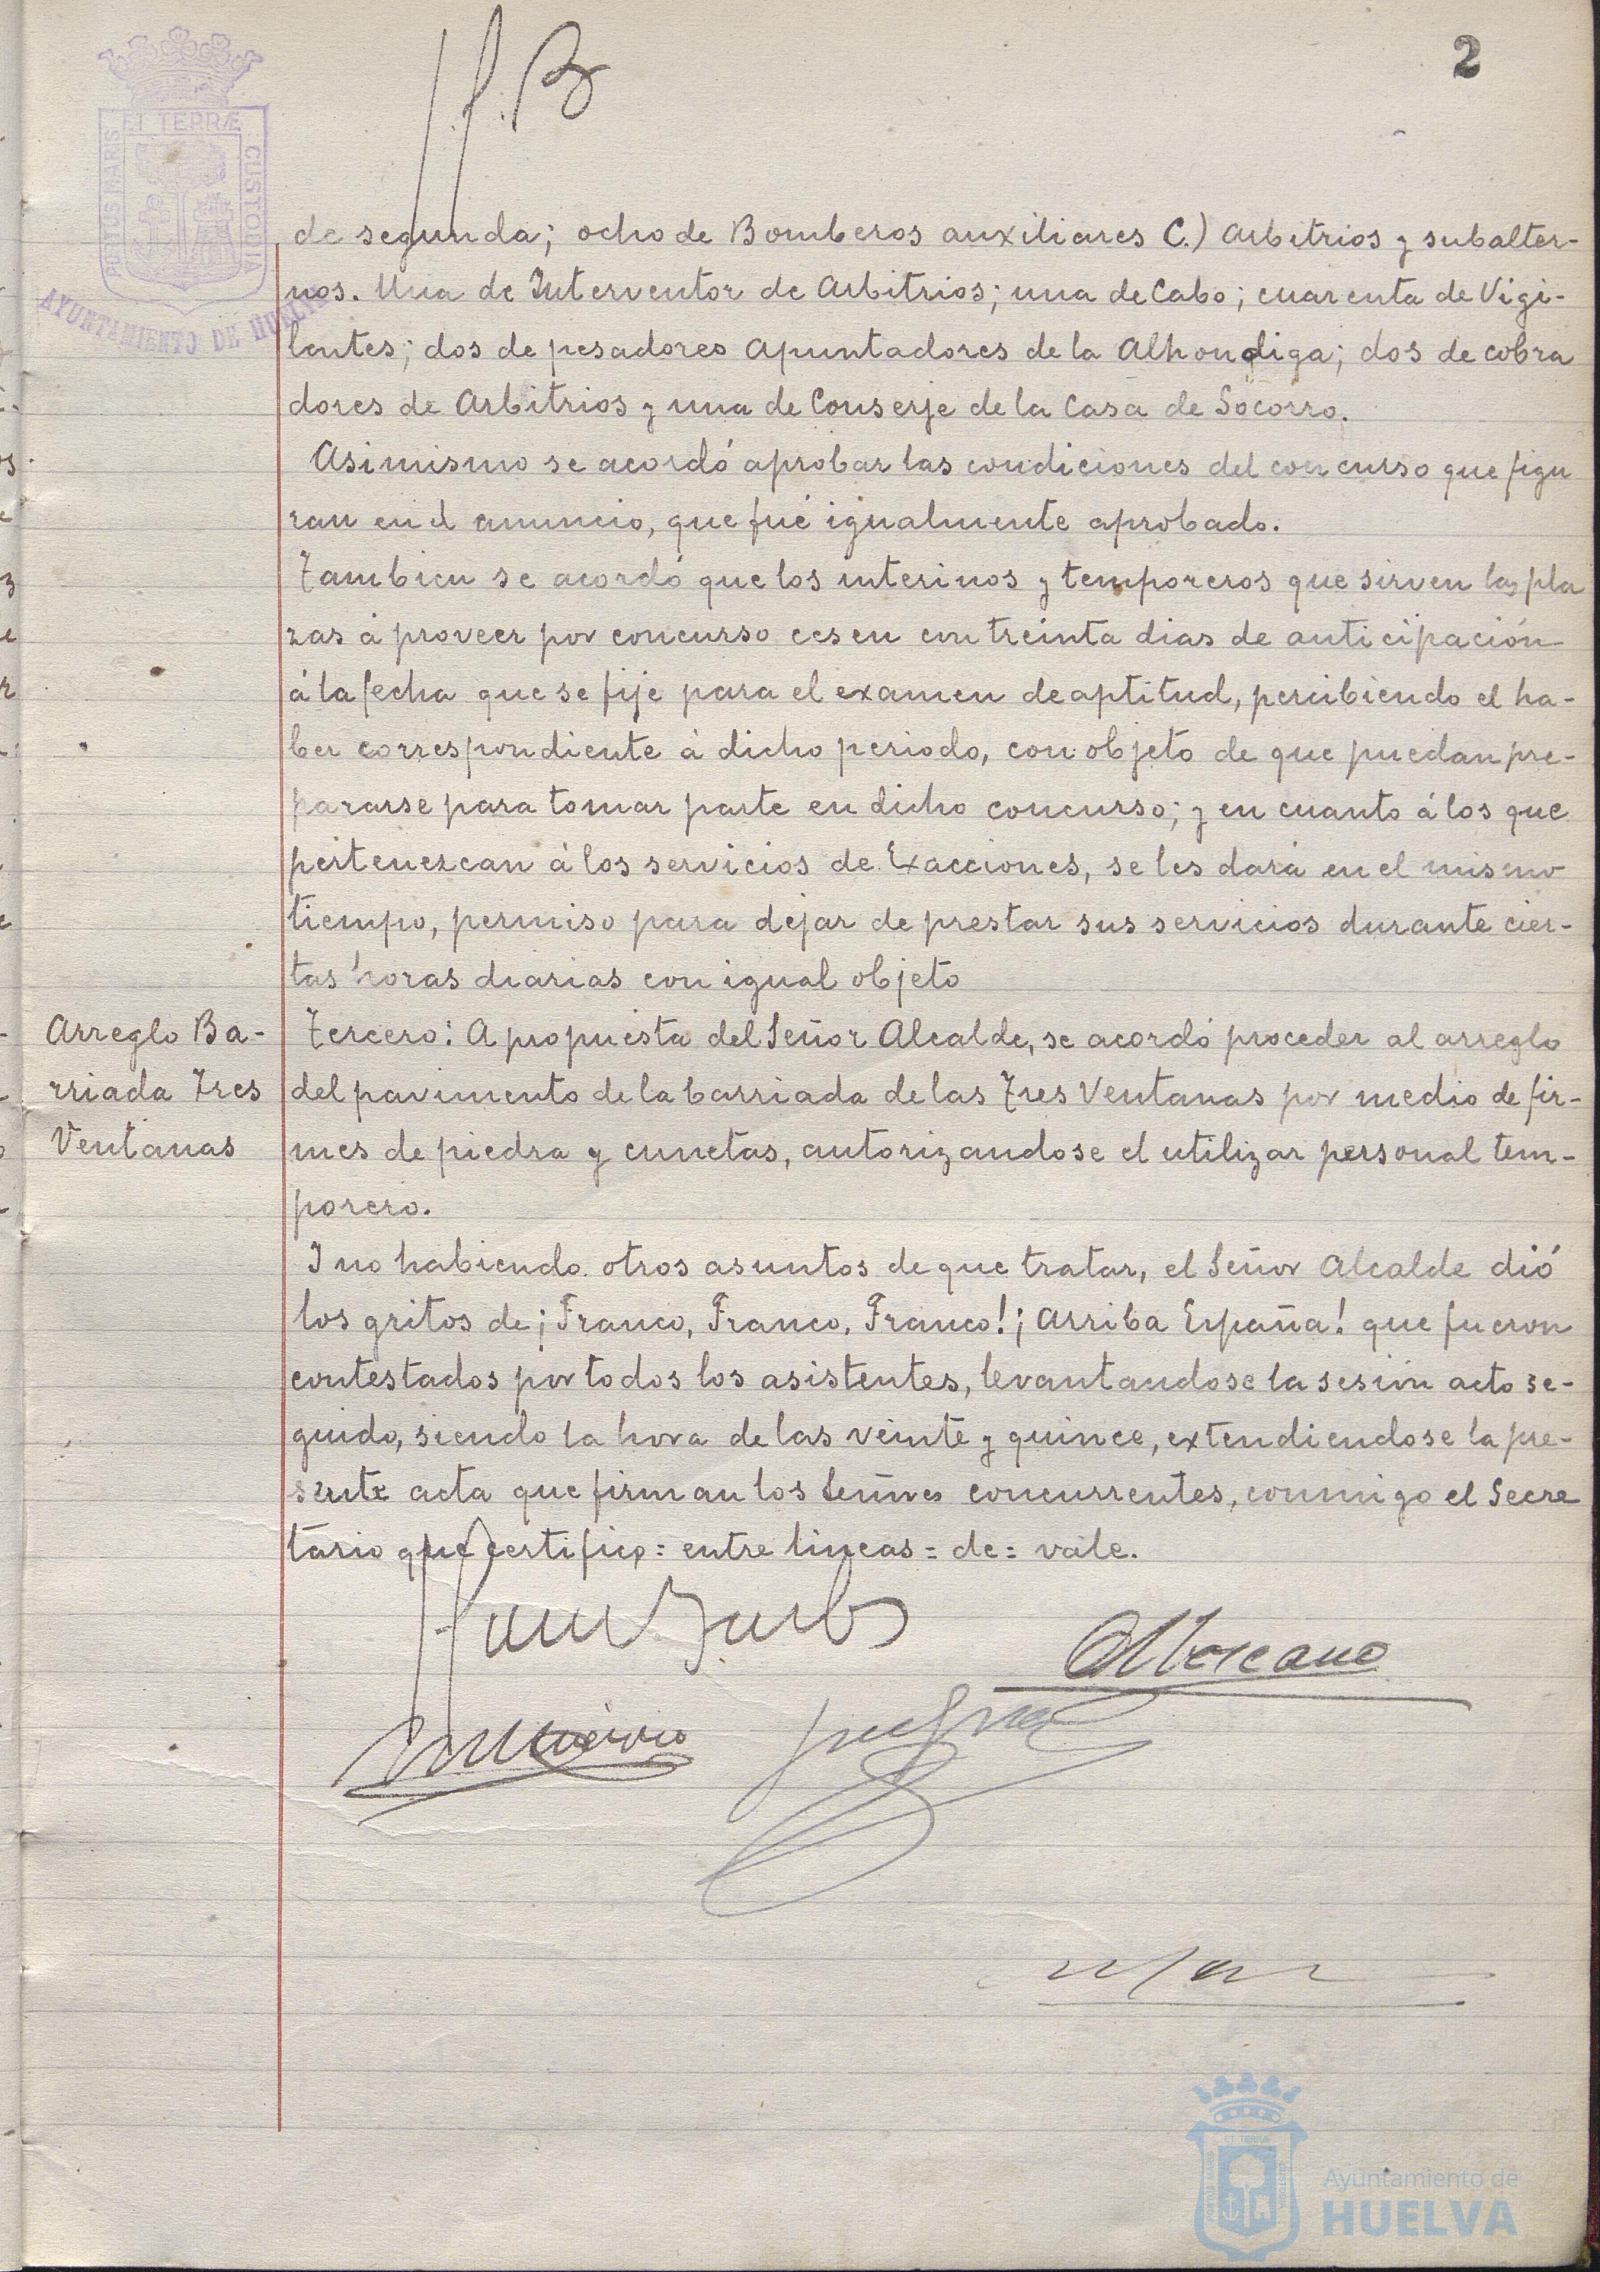 2
J. J. B
PORTUS MARIS ET TERRÆ CUSTODIA
AYUNTAMIENTO DE HUELVA
de segunda; ocho de Bomberos auxiliares C.) Arbitrios y subalter-
nos. Una de Interventor de Arbitrios; una de Cabo; cuarenta de Vigi-
lantes; dos de pesadores apuntadores de la Alhondiga; dos de cobra
dores de Arbitrios y una de Conserje de la Casa de Socorro.
Asimismo se acordó aprobar las condiciones del concurso que figu
ran en el anuncio, que fué igualmente aprobado.
Tambien se acordó que los interinos y temporeros que sirven las pla
zas á proveer por concurso cesen con treinta dias de anticipación
á la fecha que se fije para el examen de aptitud, percibiendo el ha-
ber correspondiente á dicho periodo, con objeto de que puedan pre-
pararse para tomar parte en dicho concurso; y en cuanto á los que
pertenezcan á los servicios de Exacciones, se les dará en el mismo
tiempo, permiso para dejar de prestar sus servicios durante cier-
tas horas diarias con igual objeto
Arreglo Ba-
rriada Tres
Ventanas
Tercero: A propuesta del Señor Alcalde, se acordó proceder al arreglo
del pavimento de la barriada de las Tres Ventanas por medio de fir-
mes de piedra y cunetas, autorizandose el utilizar personal tem-
porero.
Y no habiendo otros asuntos de que tratar, el Señor Alcalde dió
los gritos de ¡Franco, Franco, Franco! ¡Arriba España! que fueron
contestados por todos los asistentes, levantandose la sesión acto se-
guido, siendo la hora de las veinte y quince, extendiendose la pre-
sente acta que firman los Señores concurrentes, conmigo el Secre
tario que certifico = entre lineas = de = vale.
Ayuntamiento de
HUELVA